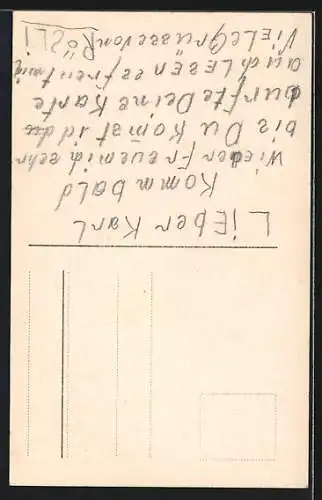 LiEber KarL
Komm bald
Wieder Freue mich sehr
bis Du Komst
durfte Deine Karte
auch LESEN es freut mich
ViELE Grüsse von RÖSLi